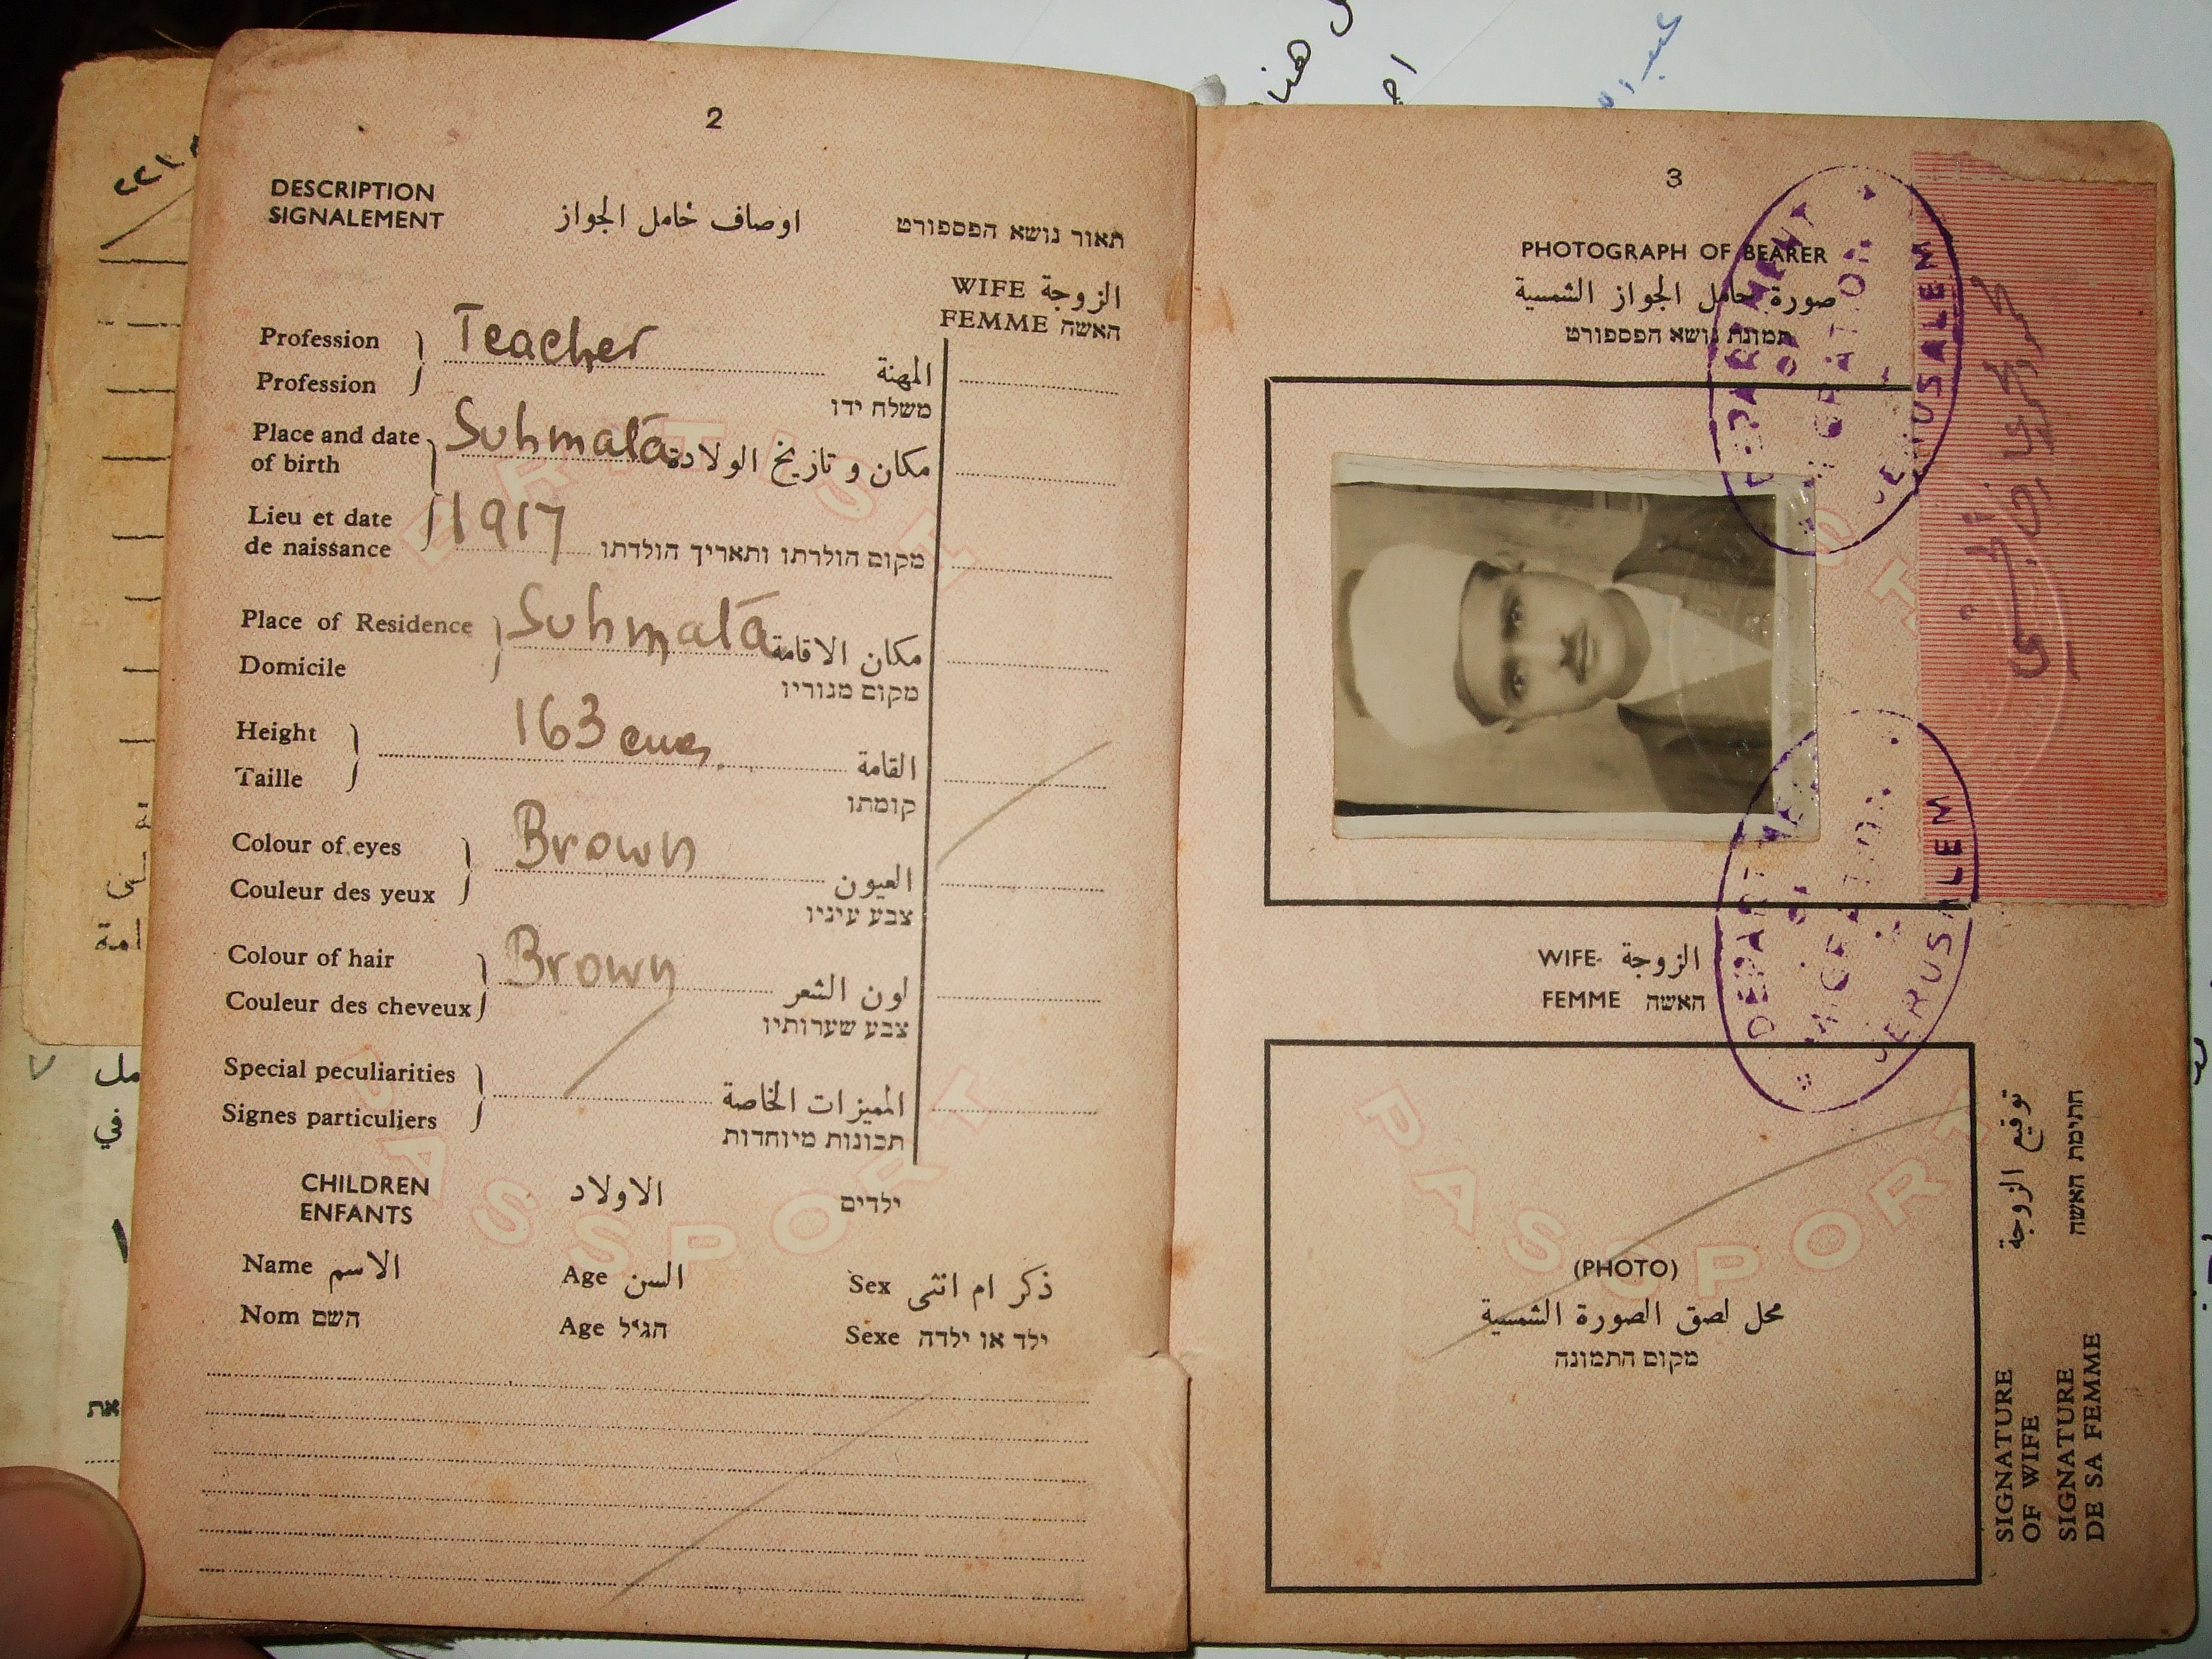 2
DESCRIPTION
SIGNALEMENT
اوصاف حامل الجواز
תאור נושא הפספורט
WIFE الزوجة
FEMME האשה
Profession
Profession
Teacher
المهنة
משלח ידו
Place and date
of birth
Suhmata
مكان و تاريخ الولادة
Lieu et date
de naissance
1917
מקום הולדתו ותאריך הולדתו
Place of Residence
Domicile
Suhmata
مكان الاقامة
מקום מגוריו
Height
Taille
163 cms.
القامة
קומתו
Colour of eyes
Couleur des yeux
Brown
العيون
צבע עיניו
Colour of hair
Couleur des cheveux
Brown
لون الشعر
צבע שערותיו
Special peculiarities
Signes particuliers
المميزات الخاصة
תכונות מיוחדות
CHILDREN
ENFANTS
الاولاد
ילדים
Name الاسم
Age السن
Sex ذكر ام انثى
Nom השם
Age הגיל
Sexe ילד או ילדה
BRITISH
PASSPORT
3
PHOTOGRAPH OF BEARER
صورة حامل الجواز الشمسية
תמונת נושא הפספורט
DEPARTMENT
OF
MIGRATION
JERUSALEM
WIFE الزوجة
FEMME האשה
DEPARTMENT
OF
MIGRATION
JERUSALEM
(PHOTO)
محل لصق الصورة الشمسية
מקום התמונה
PASSPORT
توقيع الزوجة
חתימת האשה
SIGNATURE
OF WIFE
SIGNATURE
DE SA FEMME
في
את